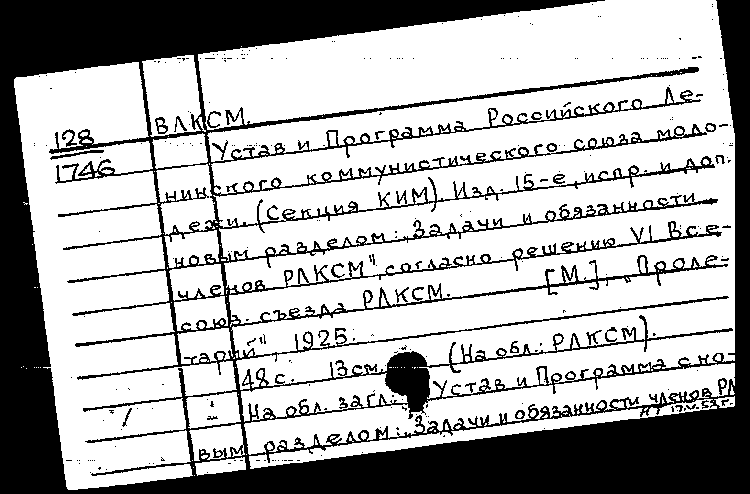 ВЛКСМ.
128
1746
Устав и Программа Российского Ле-
нинского коммунистического союза моло-
дежи. (Секция КИМ). Изд. 15-е, испр. и доп.
новым разделом: „Задачи и обязанности
членов РЛКСМ", согласно решению VI Все-
союз. съезда РЛКСМ. [М.], „Проле-
тарий", 1925.
48 с. 13 см. (На обл.: РЛКСМ).
На обл. загл.: Устав и Программа с но-
вым разделом: „Задачи и обязанности членов РЛ